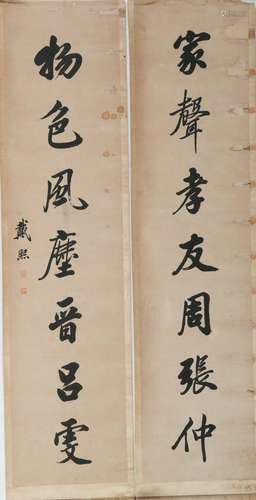 家聲孝友周張仲
物色風塵晉呂虔
戴熙